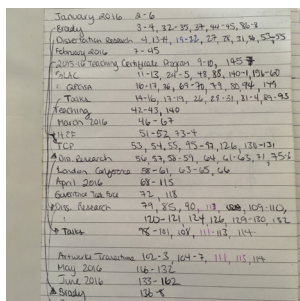 January 2016 2-6
Brady 3-9, 32-35, 37, 44-45, 86-8
Dissertation Research 4, 13-14, 19-22, 27, 28, 31, 36, 53, 55
February 2016 7-45
2015-16 Teaching Certificate Program 9-10, 145
SLAC 11-13, 24-5, 48, 88, 140-1, 156-60
" 16-17, 36, 69-70, 79, 80, 94, 149
" Talks 14-16, 17-19, 26, 29-31, 81-4, 89-93
Teaching 42-43, 140
March 2016 46-67
51-52, 73-4
TCP 53, 54, 55, 95-97, 126, 130-131
Dis. Research 56, 57, 58-59, 64, 61-63, 71, 75-8
London Conference 58-61, 63-65, 66
April 2016 68-115
Governance Task Force 72, 118
Dis. Research 79, 85, 90, 109-110,
" 120-121, 124, 126, 129-130, 132
Talks 98-101, 108, 111-113, 114
Artworks Transactions 102-3, 104-7, 111, 113, 114
May 2016 116-132
June 2016 133-162
Brady 136-8